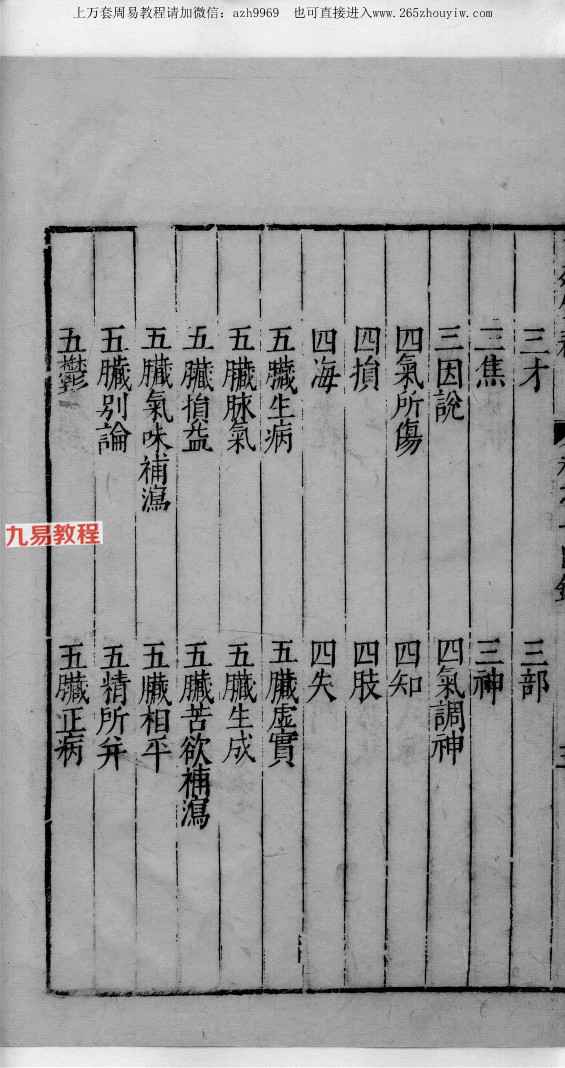 上万套周易教程请加微信：azh9969　也可直接进入www.265zhouyiw.com
三才　三部
三焦　三神
三因說　四氣調神
四氣所傷　四知
四損　四肢
四海　四失
五臟生病　五臟虛實
五臟脉氣　五臟生成
五臟損益　五臟苦欲補瀉
五臟氣味補瀉　五臟相平
五臟別論　五精所并
五鬱　五臟正病
九易教程